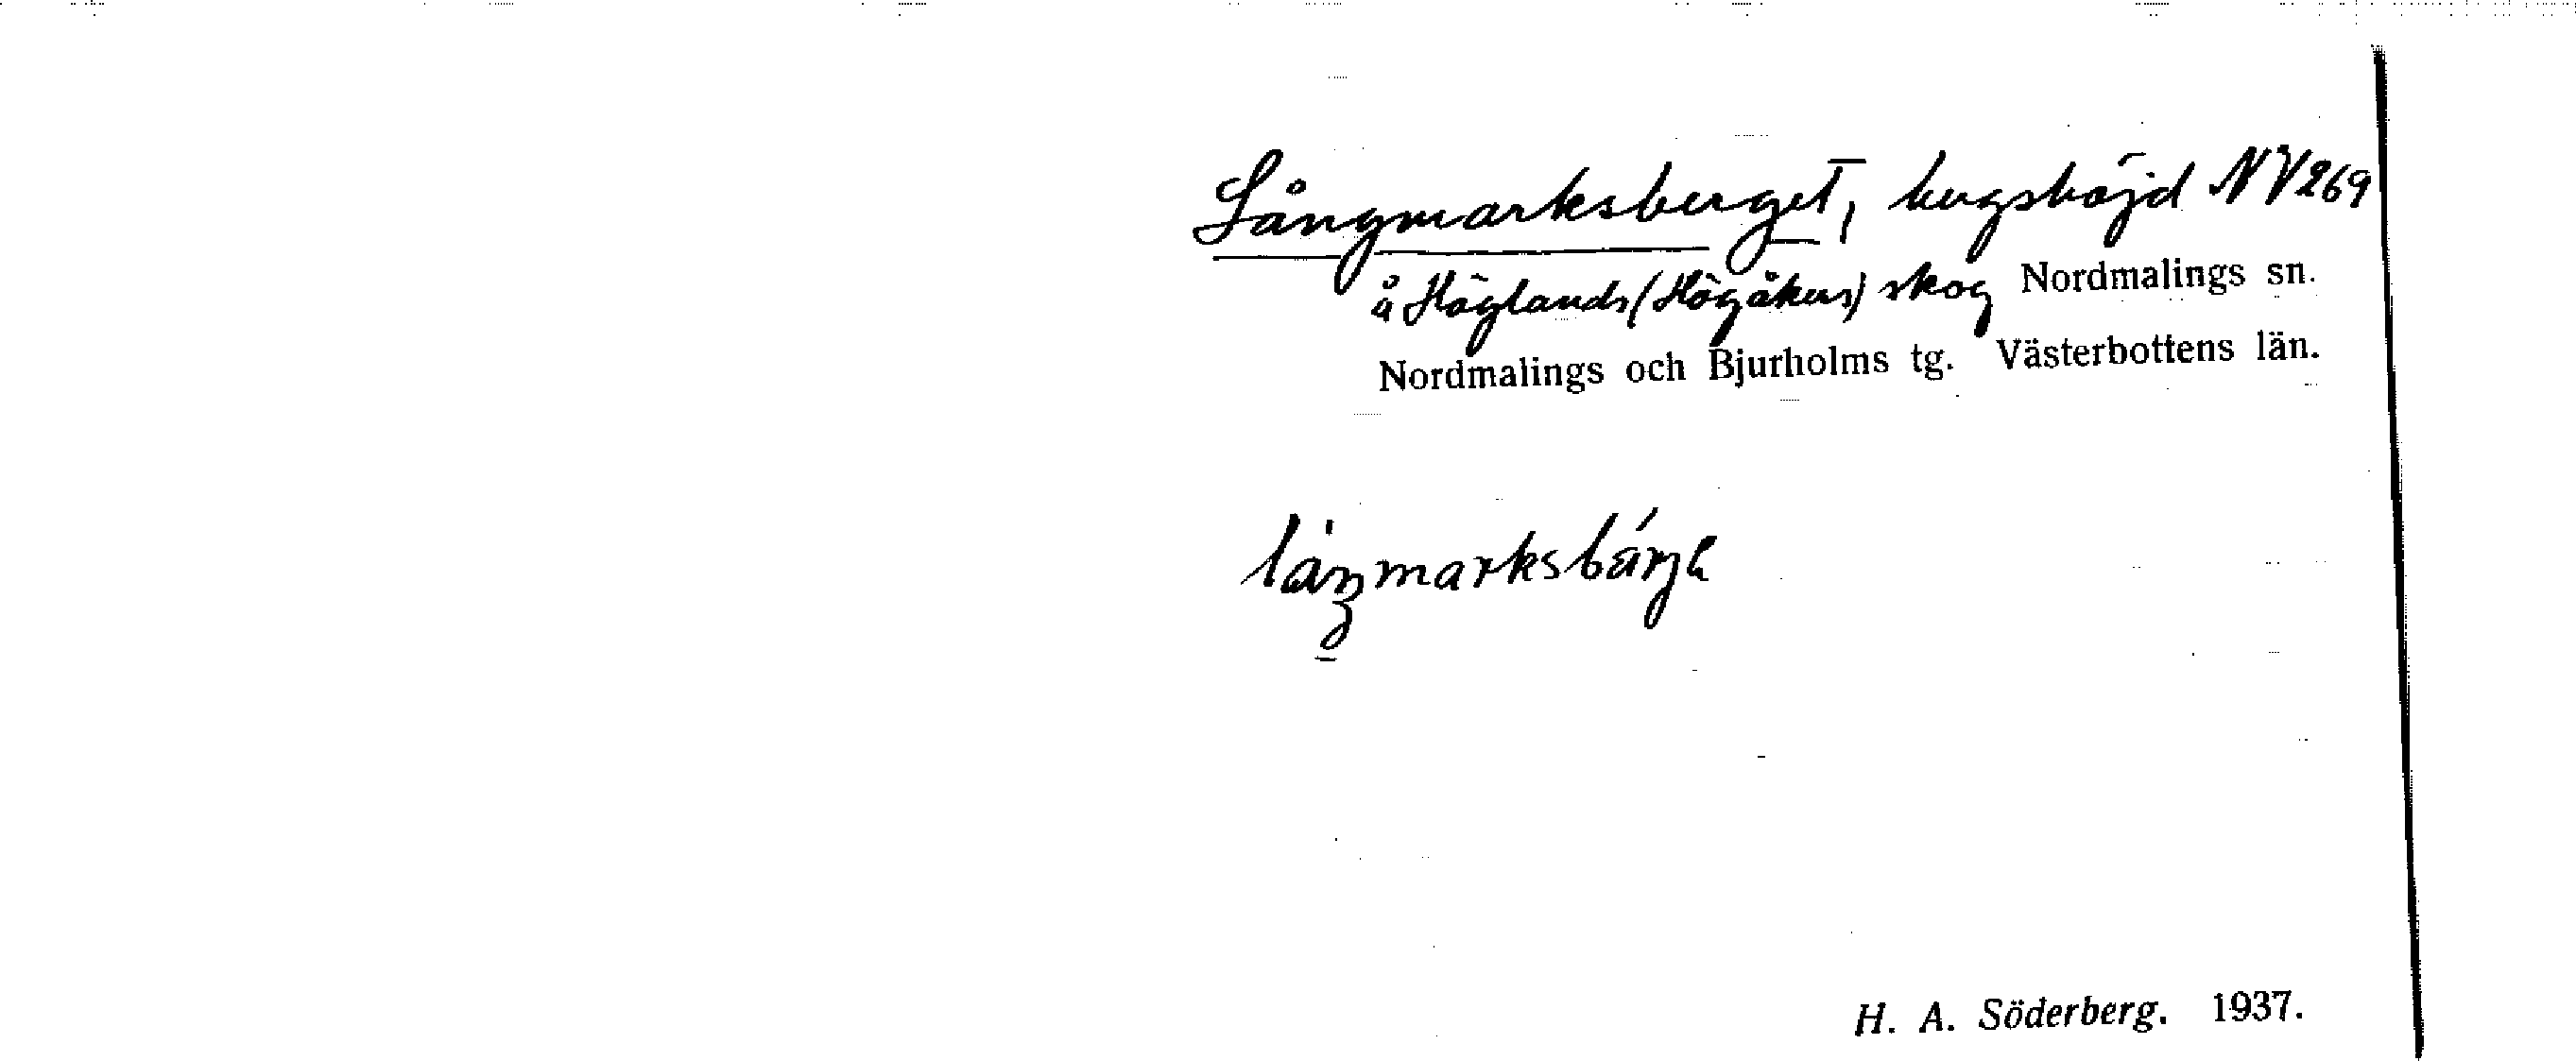 Långmarksberget, bergshöjd NV269
å Höglands (Högåkers) skog Nordmalings sn.
Nordmalings och Bjurholms tg. Västerbottens län.
H. A. Söderberg. 1937.